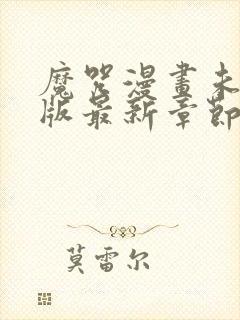 魔咒漫畫未
版最新章節
莫雷尔